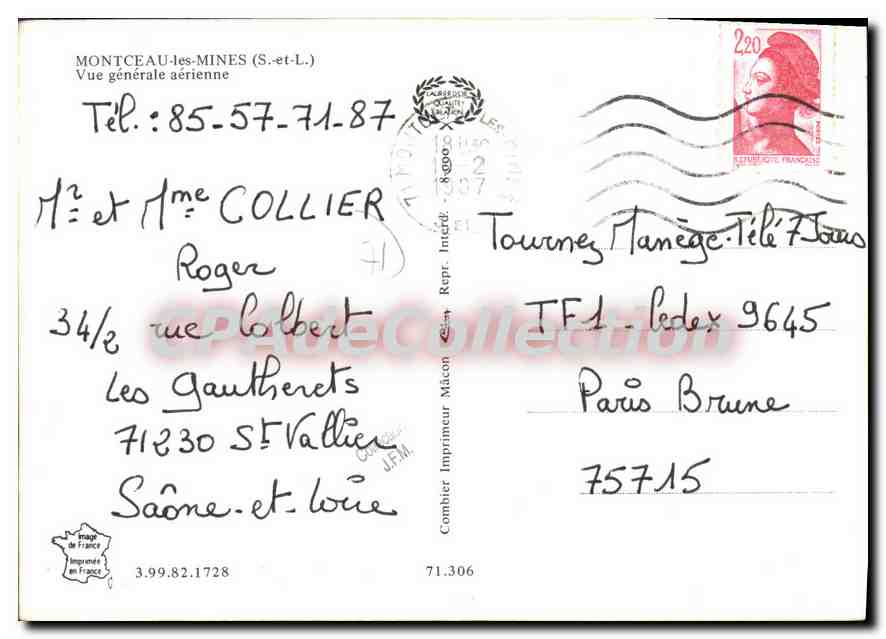 MONTCEAU-les-MINES (S.-et-L.)
Vue générale aérienne
Tél.: 85-57-71-87
Mr et Mme COLLIER
Roger
34/2 rue Colbert
Les Gautherets
71230 St Vallier
Saône-et-Loire
Image
de France
Imprimée
en France
3.99.82.1728
71.306
Combier Imprimeur Mâcon Repr. Interd. 8.000
QUALITÉ
71
COMBIER
J.F.M.
2,20
REPUBLIQUE FRANÇAISE
Tournez Manège-Télé 7 Jours
TF1-Cedex 9645
Paris Brune
75715
CPAdeCollection